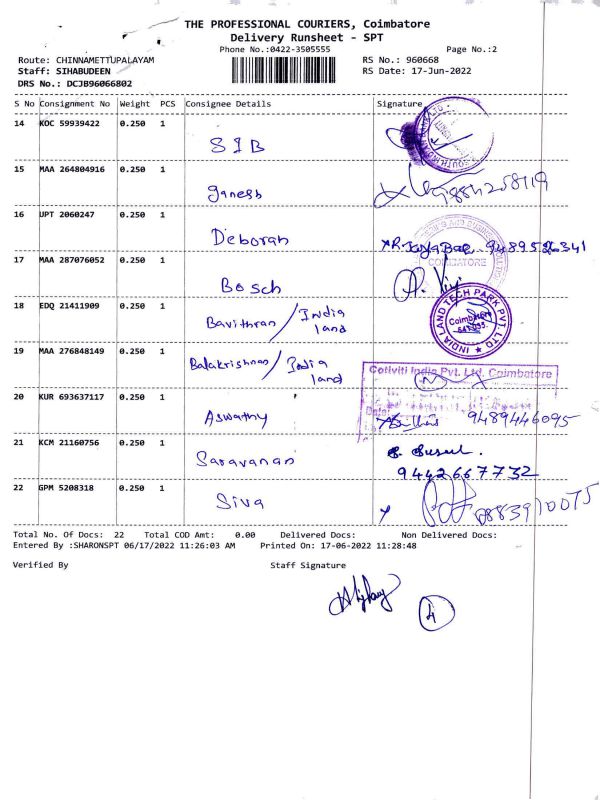 THE PROFESSIONAL COURIERS, Coimbatore
Delivery Runsheet - SPT
Phone No.:0422-3505555
Page No.:2
Route: CHINNAMETTUPALAYAM
RS No.: 960668
Staff: SIHABUDEEN
RS Date: 17-Jun-2022
DRS No.: DCJB96066802
S No Consignment No Weight PCS Consignee Details Signature
14 KOC 59939422 0.250 1 SIB
15 MAA 264804916 0.250 1 Ganesh
16 UPT 2060247 0.250 1 Deborah 9489526341
COIMBATORE
17 MAA 287076052 0.250 1 Bosch
18 EDQ 21411909 0.250 1 Bavithran / India land
INDIA LAND TECH PARK PVT. LTD
Coimbatore
641 035.
19 MAA 276848149 0.250 1 Balakrishnan / India land
Cotiviti India Pvt. Ltd. Coimbatore
20 KUR 693637117 0.250 1 Aswathy 9489446095
21 KCM 21160756 0.250 1 Saravanan
9442667732
22 GPM 5208318 0.250 1 Siva
Total No. Of Docs: 22 Total COD Amt: 0.00 Delivered Docs: Non Delivered Docs:
Entered By :SHARONSPT 06/17/2022 11:26:03 AM Printed On: 17-06-2022 11:28:48
Verified By Staff Signature